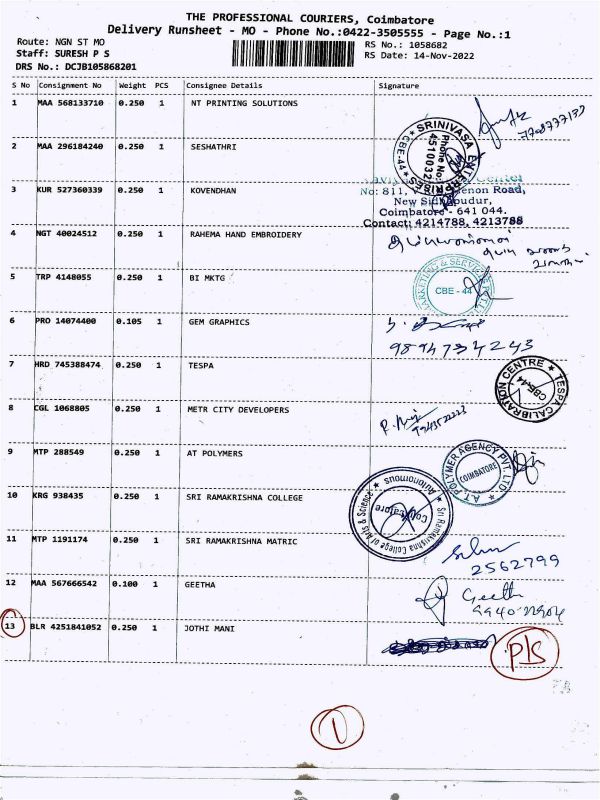 THE PROFESSIONAL COURIERS, Coimbatore
Delivery Runsheet - MO - Phone No.:0422-3505555 - Page No.:1
Route: NGN ST MO
Staff: SURESH P S
DRS No.: DCJB105868201
RS No.: 1058682
RS Date: 14-Nov-2022
S No Consignment No Weight PCS Consignee Details Signature
1 MAA 568133710 0.250 1 NT PRINTING SOLUTIONS
2 MAA 296184240 0.250 1 SESHATHRI
SRINIVASA ENTERPRISES
CBE-44
Phone No:
4510032
3 KUR 527360339 0.250 1 KOVENDHAN
No: 811, Menon Road,
New Sidhapudur,
Coimbatore - 641 044.
Contact: 4214788, 4213788
4 NGT 40024512 0.250 1 RAHEMA HAND EMBROIDERY
5 TRP 4148055 0.250 1 BI MKTG
MARKETING & SERVICES
CBE - 44
6 PRO 14074400 0.105 1 GEM GRAPHICS
9894734243
7 HRD 745388474 0.250 1 TESPA
TESPA CALIBRATION CENTRE
CBE-44
8 CGL 1068805 0.250 1 METR CITY DEVELOPERS
9 MTP 288549 0.250 1 AT POLYMERS
A.T. POLYMER AGENCY PVT. LTD
COIMBATORE
10 KRG 938435 0.250 1 SRI RAMAKRISHNA COLLEGE
Sri Ramakrishna College of Arts & Science
Autonomous
Coimbatore
11 MTP 1191174 0.250 1 SRI RAMAKRISHNA MATRIC
2562799
12 MAA 567666542 0.100 1 GEETHA
Geetha
13 BLR 4251841052 0.250 1 JOTHI MANI
P/S
1